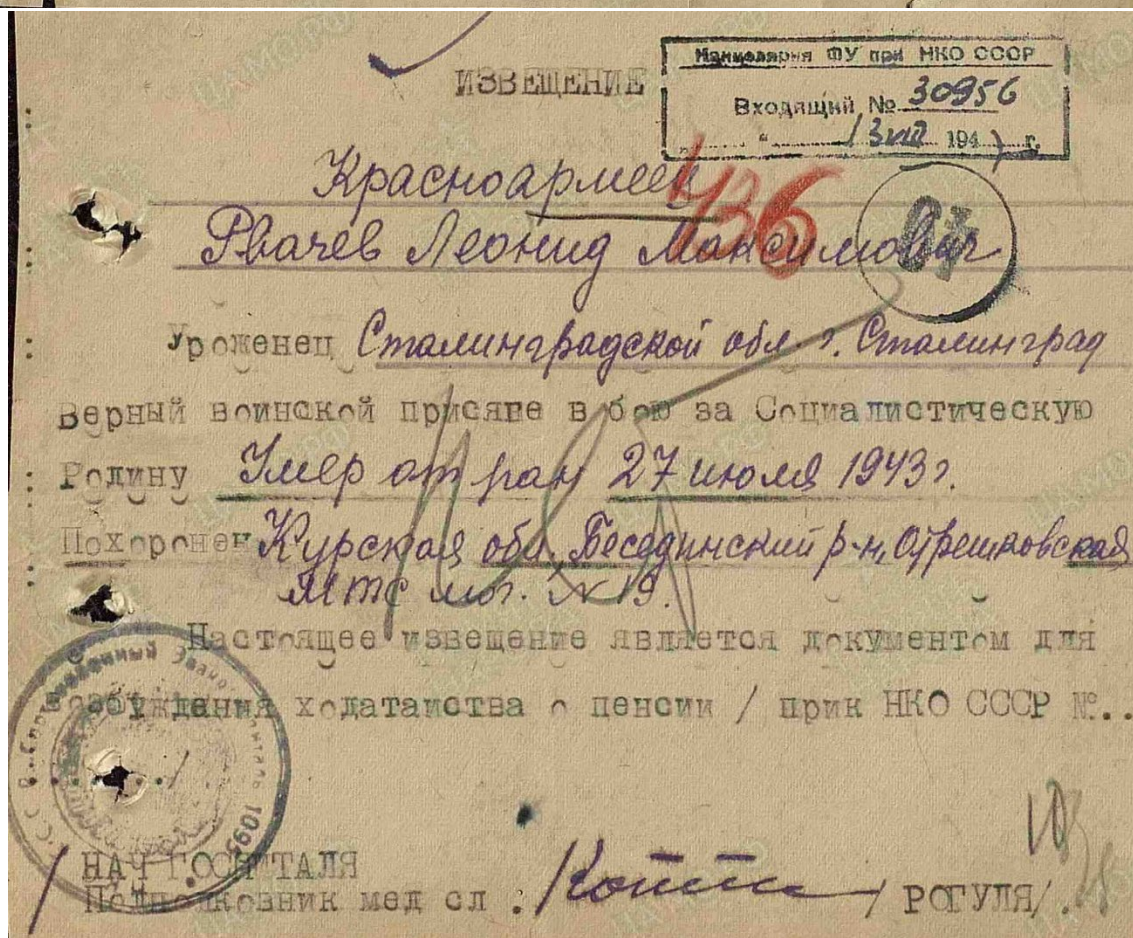 ИЗВЕЩЕНИЕ
Канцелярия ФУ при НКО СССР
Входящий № 30956
"13 VIII 194 г.
Красноармеец
436
Рвачев Леонид Максимович
Уроженец Сталинградской обл. г. Сталинград
Верный воинской присяге в бою за Социалистическую
Родину Умер от ран 27 июля 1943 г.
Похоронен Курская обл. Бесединский р-н, Отрешковская
МТС мог. № 19.
Настоящее извещение является документом для
возбуждения ходатайства о пенсии / прик НКО СССР №..
./
НАЧ ГОСПИТАЛЯ
Подполковник мед сл : / РОГУЛЯ/.